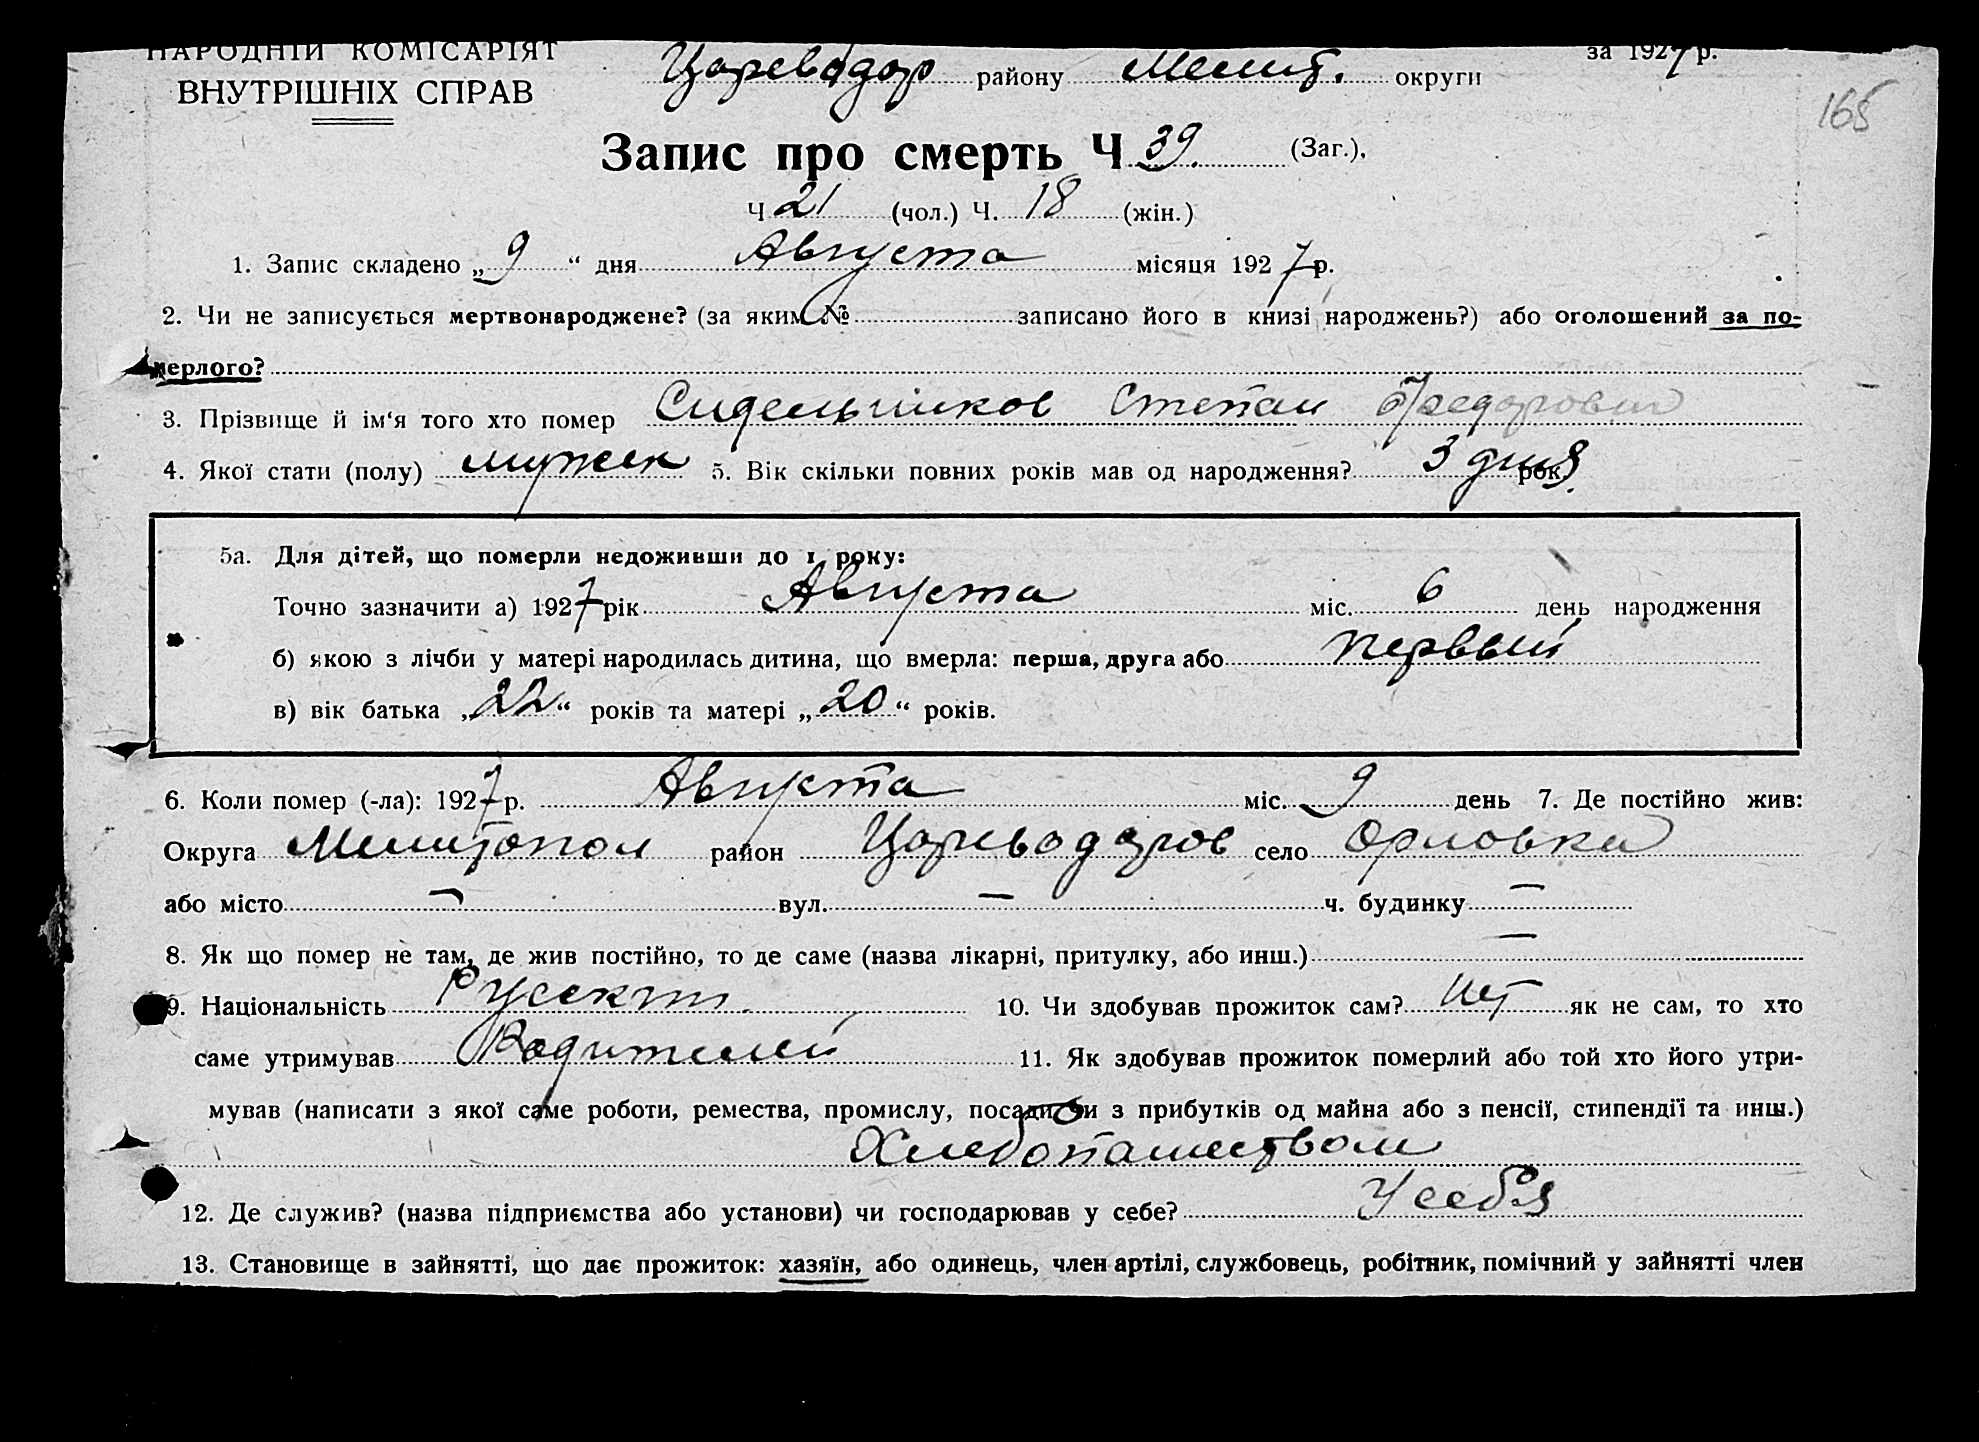 НАРОДНІЙ КОМІСАРІЯТ
ВНУТРІШНІХ СПРАВ
Цареводар району Мелит. округи
за 1927 р.
165
Запис про смерть Ч 39. (Заг.),
Ч 21 (чол.) Ч. 18 (жін.)
1. Запис складено „9“ дня Августа місяця 1927 р.
2. Чи не записується мертвонароджене? (за яким № записано його в книзі народжень?) або оголошений за по-
мерлого?
3. Прізвище й ім‘я того хто помер Сидельников Степан Федорович
4. Якої стати (полу) мужск 5. Вік скільки повних років мав од народження? 3 дня рок
5а. Для дітей, що померли недоживши до 1 року:
Точно зазначити а) 1927 рік Августа міс. 6 день народження
б) якою з лічби у матері народилась дитина, що вмерла: перша, друга або первый
в) вік батька „22“ років та матері „20“ років.
6. Коли помер (-ла): 1927 р. Августа міс. 9 день 7. Де постійно жив:
Округа Мелитопол район Цареводаров село Орловка
або місто — вул. — ч. будинку —
8. Як що помер не там, де жив постійно, то де саме (назва лікарні, притулку, або инш.) —
9. Національність Русский 10. Чи здобував прожиток сам? Нет як не сам, то хто
саме утримував Родителей 11. Як здобував прожиток померлий або той хто його утри-
мував (написати з якої саме роботи, ремества, промислу, посади чи з прибутків од майна або з пенсії, стипендії та инш.)
Хлебопашеством
12. Де служив? (назва підприємства або установи) чи господарював у себе? У себя
13. Становище в зайнятті, що дає прожиток: хазяїн, або одинець, член артілі, службовець, робітник, помічний у зайнятті член